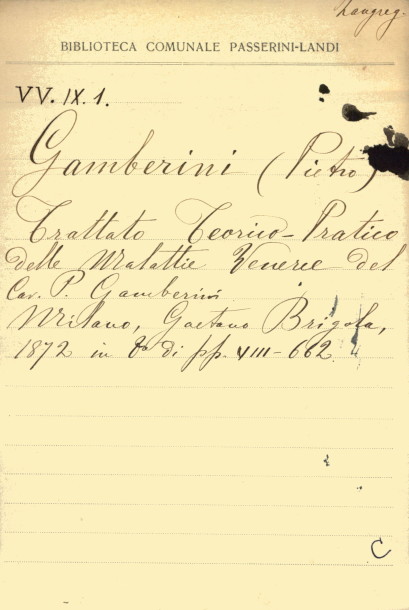 Langreg.
BIBLIOTECA COMUNALE PASSERINI-LANDI
VV. IX. 1.
Gamberini (Pietro)
Trattato Teorico-Pratico
delle Malattie Veneree del
Cav. P. Gamberini
Milano, Gaetano Brigola,
1872 in 8º di pp. VIII-662
C